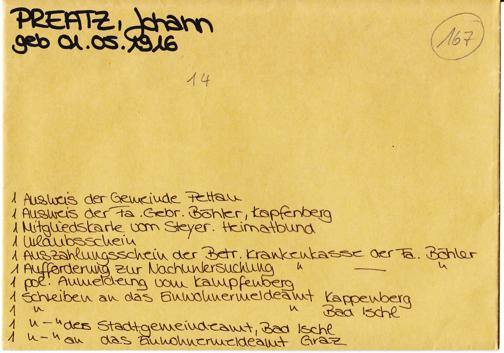 PREATZ, Johann
geb 01.05.1916
167
14
1 Ausweis der Gemeinde Pettau
1 Ausweis der Fa. Gebr. Böhler, Kapfenberg
1 Mitgliedskarte vom Steyer. Heimatbund
1 Urlaubsschein
1 Auszahlungsschein der Betr. Krankenkasse der Fa. Böhler
1 Aufforderung zur Nachuntersuchung " — "
1 pol. Anmeldung vom Kampfenberg
1 Schreiben an das Einwohnermeldeamt Kappenberg
1 " " Bad Ischl
1 "-" des Stadtgemeindeamt, Bad Ischl
1 "-" an das Einwohnermeldeamt Graz